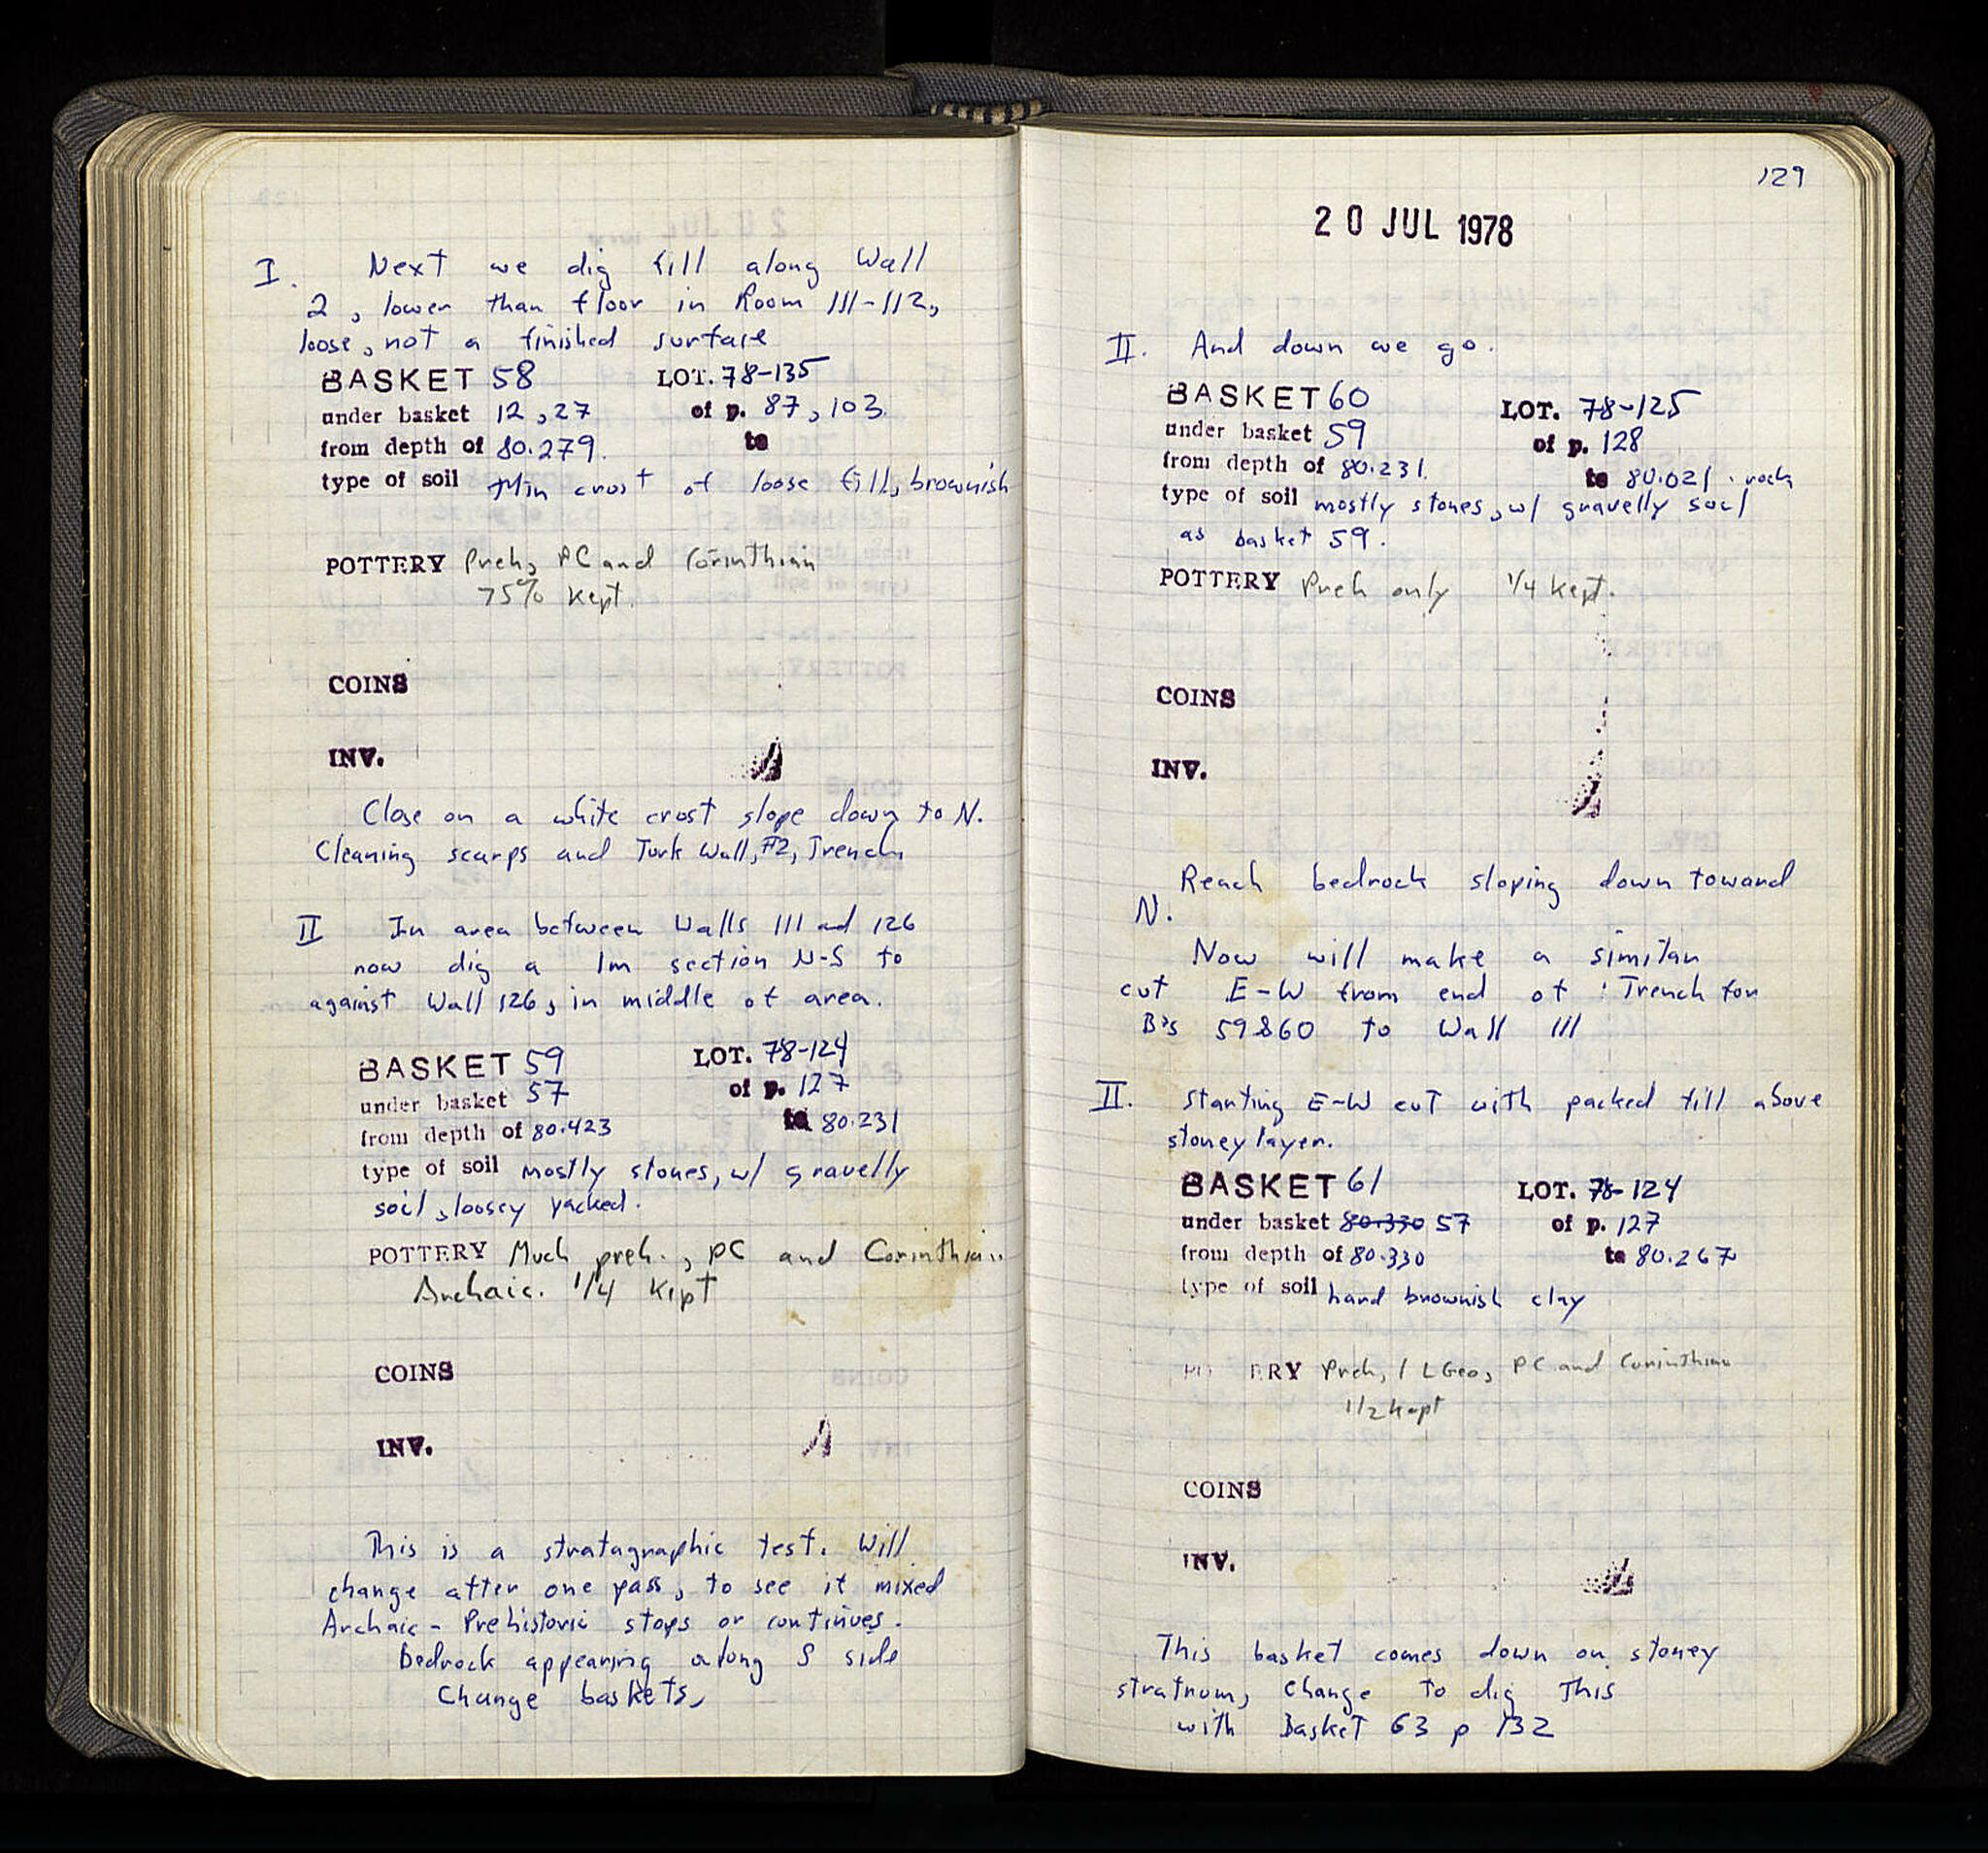 I. Next we dig fill along Wall
2, lower than floor in Room 111-112,
loose, not a finished surface
BASKET 58 LOT. 78-135
under basket 12, 27 of p. 87, 103
from depth of 80.279. to
type of soil thin crust of loose fill, brownish
POTTERY Preh, PC and Corinthian
75% kept.
COINS
INV.
Close on a white crust slope down to N.
Cleaning scarps and Turk Wall, #2, Trench
II In area between Walls 111 and 126
now dig a 1m section N-S to
against Wall 126, in middle of area.
BASKET 59 LOT. 78-124
under basket 57 of p. 127
from depth of 80.423 to 80.231
type of soil mostly stones, w/ gravelly
soil, loosey packed.
POTTERY Much preh., PC and Corinthian
Archaic. 1/4 kept
COINS
INV.
This is a stratagraphic test. Will
change after one pass, to see if mixed
Archaic-Prehistoric stops or continues.
Bedrock appearing along S side
Change baskets,
129
20 JUL 1978
II. And down we go.
BASKET 60 LOT. 78-125
under basket 59 of p. 128
from depth of 80.231. to 80.021. rock
type of soil mostly stones, w/ gravelly soil
as basket 59.
POTTERY Preh only 1/4 kept.
COINS
INV.
Reach bedrock sloping down toward
N.
Now will make a similar
cut E-W from end of Trench for
B's 59&60 to Wall 111
II. Starting E-W cut with packed fill above
stoney layer.
BASKET 61 LOT. 78-124
under basket 80.330 57 of p. 127
from depth of 80.330 to 80.267
type of soil hard brownish clay
POTTERY Preh, 1 LGeo, PC and Corinthian
1/2 kept
COINS
INV.
This basket comes down on stoney
stratnum, change to dig This
with Basket 63 p 132